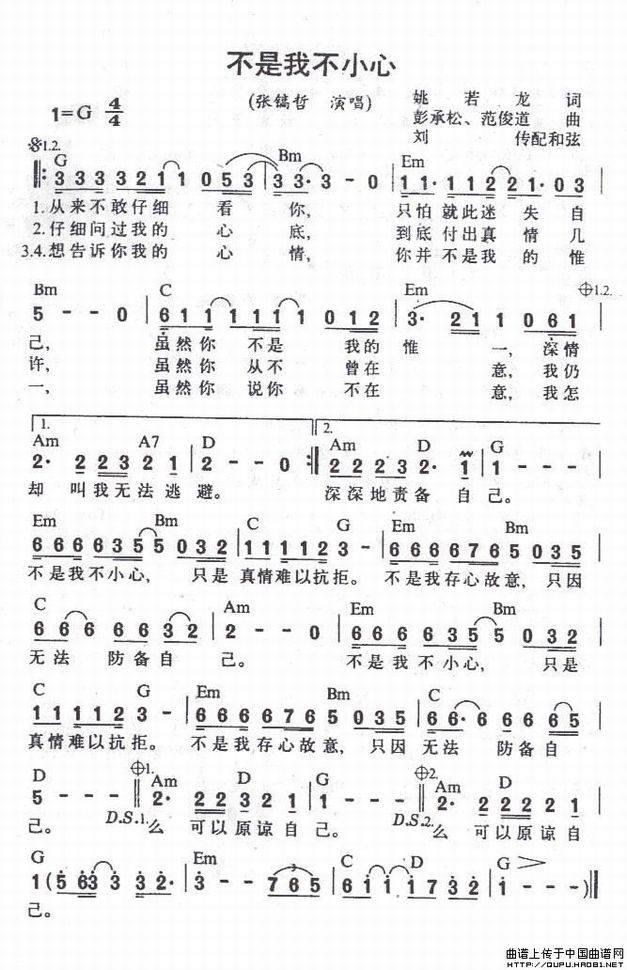 不是我不小心
(张镐哲 演唱)
姚若龙 词
彭承松、范俊道 曲
刘传配和弦
1=G 4/4
1.2.
G Bm Em
3 3 3 3 2 1 1 0 5 3 3 3· 3 - 0 1 1· 1 1 2 2 1· 0 3
1.从来不敢仔细 看 你, 只怕就此迷 失 自
2.仔细问过我的 心 底, 到底付出真 情 几
3.4.想告诉你我的 心 情, 你并不是我 的 惟
Bm C Em 1.2.
5 - - 0 6 1 1 1 1 1 1 0 1 2 3· 2 1 1 0 6 1
己, 虽然你 不是 我的 惟 一, 深情
许, 虽然你 从不 曾在 意, 我仍
一, 虽然你 说你 不在 意, 我怎
1. 2.
Am A7 D Am D G
2· 2 2 3 2 1 2 - - 0 2 2 2 3 2· 1 1 - - -
却 叫我无法 逃 避。 深深地责备 自 己。
Em Bm C G Em Bm
6 6 6 6 6 3 5 5 0 3 2 1 1 1 1 2 3 - 6 6 6 6 7 6 5 0 3 5
不是我不小心, 只是 真情难以抗拒。 不是我存心故意, 只因
C Am Em Bm
6 6 6 6 6 3 2 2 - - 0 6 6 6 6 3 5 5 0 3 2
无法 防备自 己。 不是我不小心, 只是
C G Em Bm C
1 1 1 1 2 3 - 6 6 6 6 7 6 5 0 3 5 6 6· 6 6 6 6 5
真情难以抗拒。 不是我存心故意, 只因 无法 防备自
D 1. Am D G 2. Am D
5 - - - 2· 2 2 3 2 1 1 - - - 2· 2 2 2 2 1
己。 D.S.1. 么 可以原谅自 己。 D.S.2. 么 可以原谅自
G Em C D G
1 (5 6 3 3 3 3 2· 3 - - 7 6 5 6 1 1 1 7 3 2 1 - - -)
己。
曲谱上传于中国曲谱网
(HTTP://QUPU.HAO81.NET)